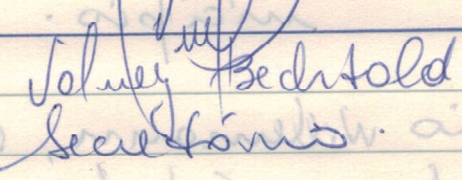 Volney Bechtold
Secretário.